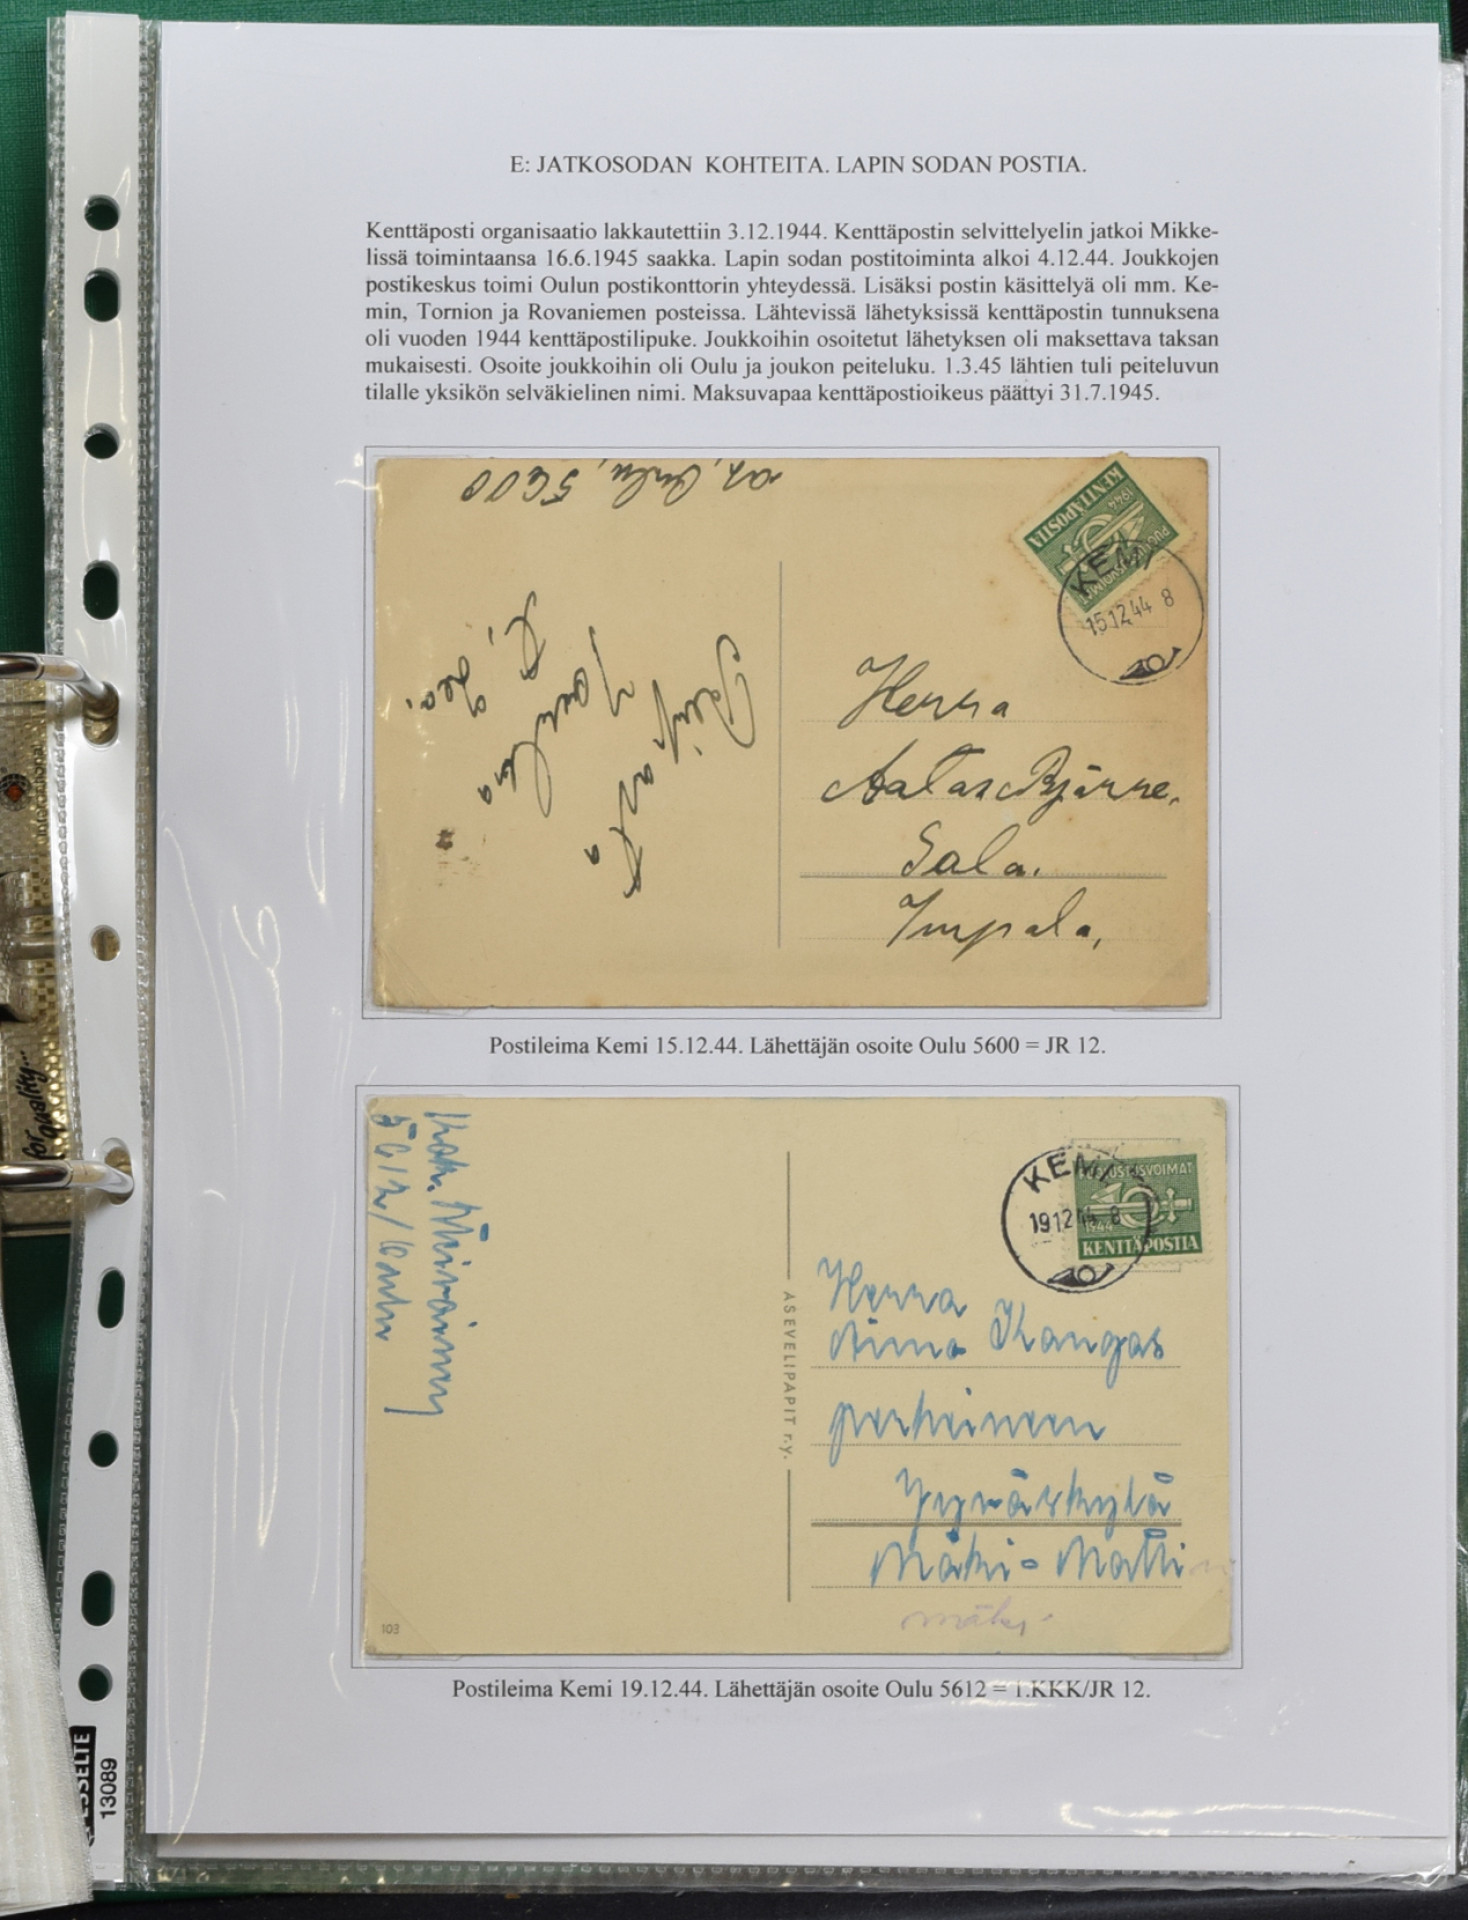 E: JATKOSODAN KOHTEITA. LAPIN SODAN POSTIA.
Kenttäposti organisaatio lakkautettiin 3.12.1944. Kenttäpostin selvittelyelin jatkoi Mikke-
lissä toimintaansa 16.6.1945 saakka. Lapin sodan postitoiminta alkoi 4.12.44. Joukkojen
postikeskus toimi Oulun postikonttorin yhteydessä. Lisäksi postin käsittelyä oli mm. Ke-
min, Tornion ja Rovaniemen posteissa. Lähtevissä lähetyksissä kenttäpostin tunnuksena
oli vuoden 1944 kenttäpostilipuke. Joukkoihin osoitetut lähetyksen oli maksettava taksan
mukaisesti. Osoite joukkoihin oli Oulu ja joukon peiteluku. 1.3.45 lähtien tuli peiteluvun
tilalle yksikön selväkielinen nimi. Maksuvapaa kenttäpostioikeus päättyi 31.7.1945.
Oulu, 5600
PUOLUSTUSVOIMAT
1944
KENTTÄPOSTIA
KEMI
15.12.44 8
Herra
Aatas Bjärre,
Sala.
Impala,
Postileima Kemi 15.12.44. Lähettäjän osoite Oulu 5600 = JR 12.
5612/Oulu
KEMI
19.12.44 8
PUOLUSTUSVOIMAT
1944
KENTTÄPOSTIA
ASEVELIPAPIT r.y.
Herra
Aimo Kangas
perheineen
Jyväskylä
Mäki-Matti
mäki
103
Postileima Kemi 19.12.44. Lähettäjän osoite Oulu 5612 = 1.KKK/JR 12.
international
for quality...
ESSELTE
13089